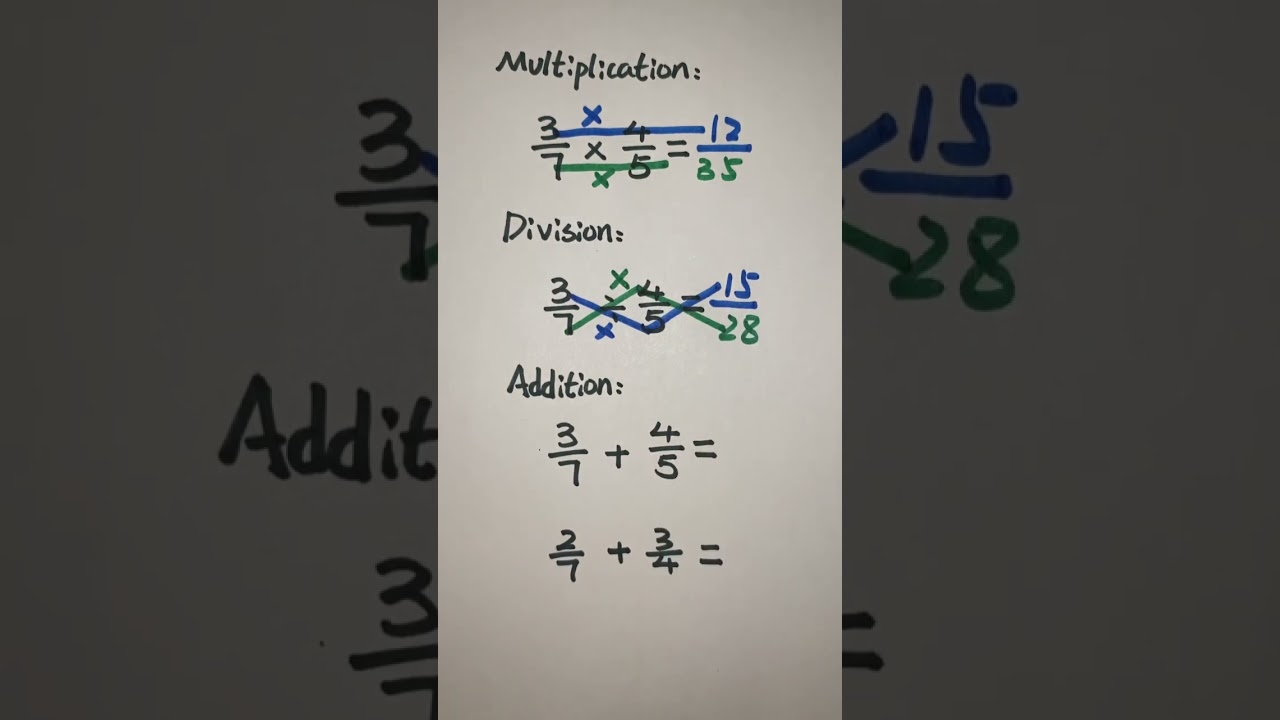 Multiplication:
3/7 × 4/5 = 12/35
×
×
Division:
3/7 ÷ 4/5 = 15/28
×
×
Addition:
3/7 + 4/5 =
2/7 + 3/4 =